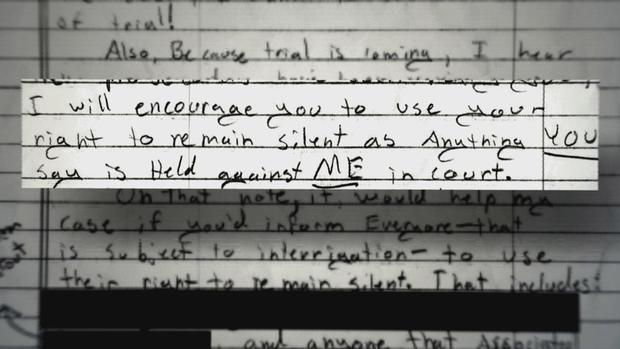 of trial!
Also, Because trial is coming, I hear
I will encourage you to use your
right to remain silent as Anything YOU
say is Held against ME in court.
On that note, it would help my
case if you'd inform Everyone—that
is subject to interrigation— to use
their right to remain silent. That includes:
and anyone that